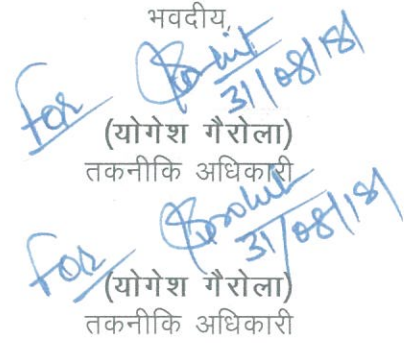 भवदीय,
For Rohit
31/08/18
(योगेश गैरोला)
तकनीकि अधिकारी
For Rohit
31/08/18
(योगेश गैरोला)
तकनीकि अधिकारी